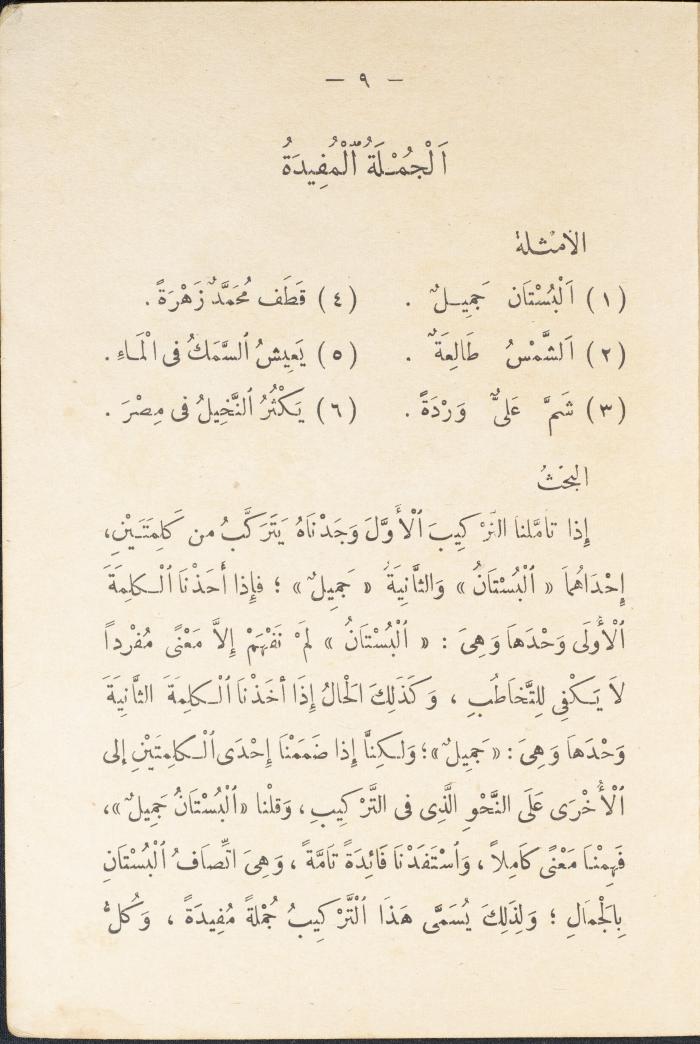 — ٩ —
اَلْجُمْلَةُ ٱلْمُفِيدَةُ
الأمثلة
(١) اَلْبُسْتَان جَمِيلٌ . (٤) قَطَف مُحَمَّدٌ زَهْرَةً .
(٢) اَلشَّمْسُ طَالِعَةٌ . (٥) يَعِيشُ ٱلسَّمَكُ فى الْمَاءِ .
(٣) شَمَّ عَلىٌّ وَرْدَةً . (٦) يَكْثُرُ ٱلنَّخِيلُ فى مِصْرَ .
البحثُ
إِذا تأمَّلنا التَّرْكِيبَ ٱلْأَوَّلَ وَجَدْنَاهُ يَتَرَكَّبُ من كَلِمَتَيْنِ،
إِحْدَاهُمَا « ٱلْبُسْتَانُ » وَالثَّانِيَةُ « جَمِيلٌ » ؛ فإِذا أَخَذْنَا ٱلْكلِمَةَ
ٱلْأُولَى وَحْدَهَا وَهِىَ : « ٱلْبُسْتَانُ » لمْ نَفْهَمْ إِلاَّ مَعْنًى مُفْرداً
لاَ يَكْفِى لِلتَّخَاطُبِ ، وَكَذٰلِكَ الْحَالُ إِذَا أَخَذْنَا ٱلْكلِمَةَ الثَّانِيَةَ
وَحْدَهَا وَهِىَ : « جَمِيلٌ » ؛ وَلكِنَّا إِذا ضَمَمْنَا إِحْدَى ٱلْكلِمَتَيْنِ إِلى
ٱلْأُخْرَى عَلَى النَّحْوِ الَّذِى فى التَّرْكِيبِ ، وَقلْنا «ٱلْبُسْتَانُ جَمِيلٌ» ،
فَهِمْنَا مَعْنًى كَامِلاً ، وَٱسْتَفَدْنَا فَائِدَةً تَامَّةً ، وَهِىَ اتِّصَافُ ٱلْبُسْتَانِ
بِالْجْمَالِ ؛ وَلِذٰلِكَ يُسَمَّى هَذَا ٱلْتَّرْكِيبُ جُمْلَةً مُفِيدَةً ، وَكُلُّ